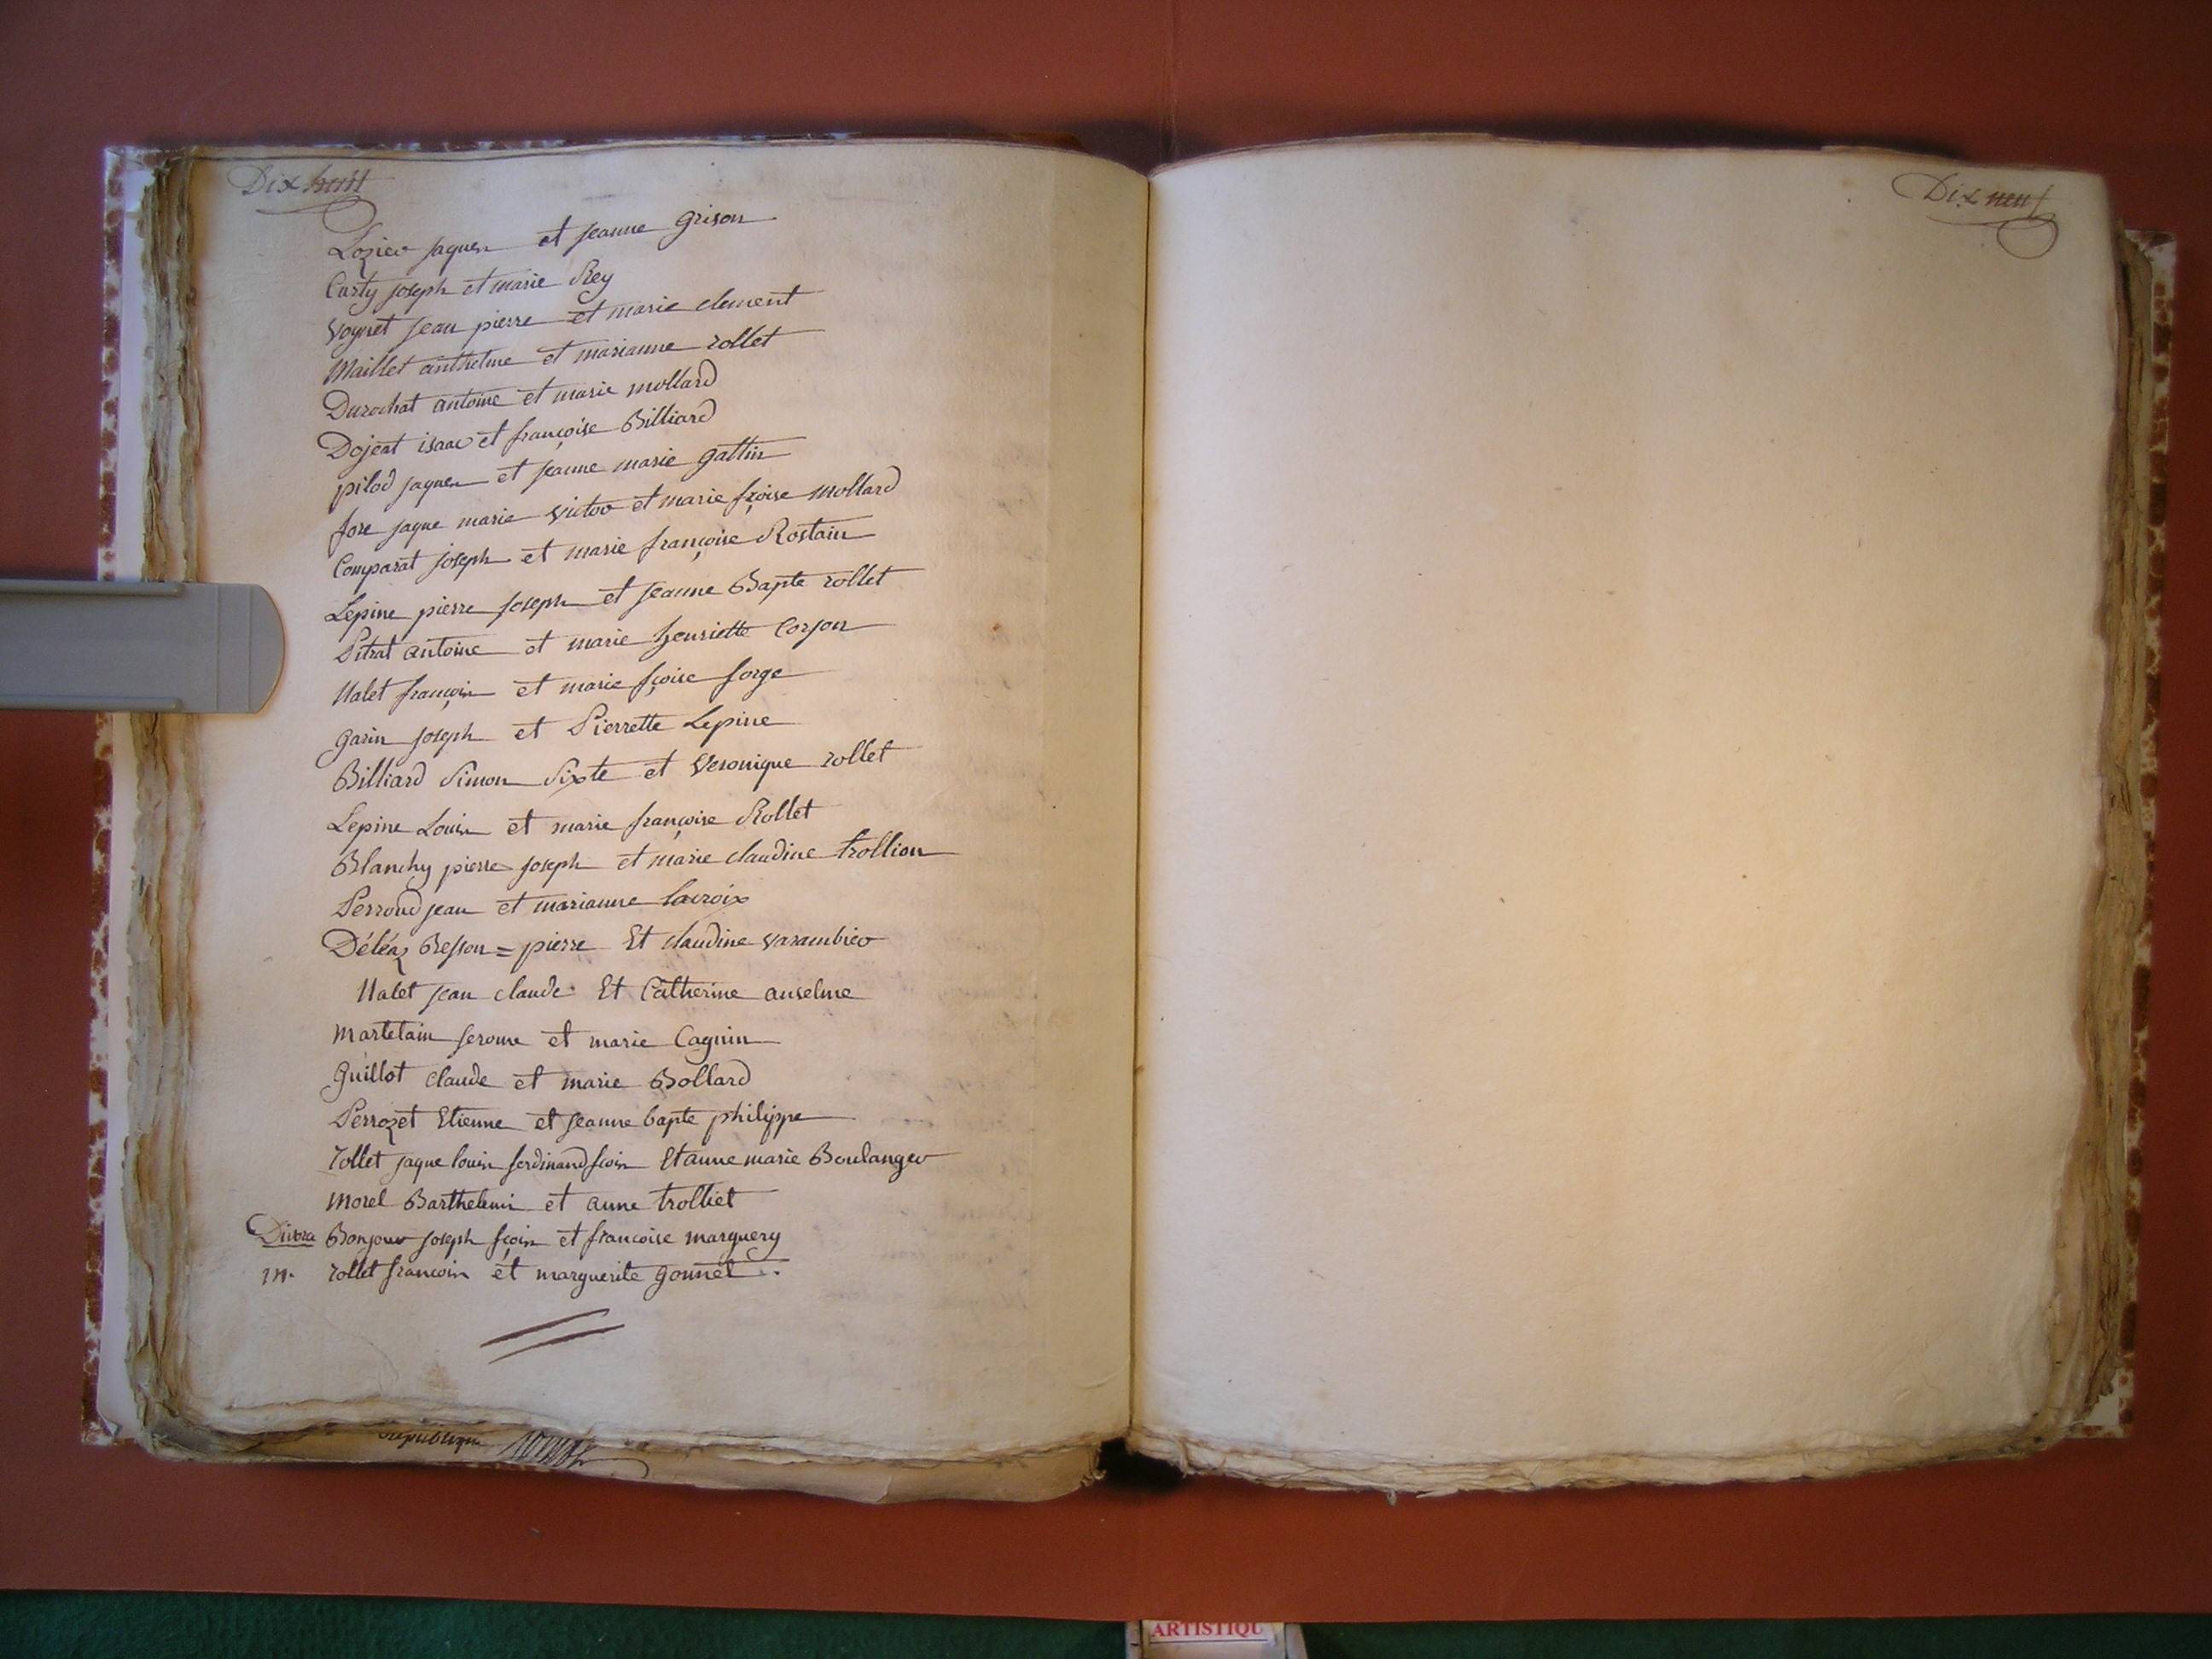 Dix huit
Lozier jaques et jeanne grison
Carty joseph et marie Rey
Voynet jean pierre et marie clement
Maillet anthelme et marianne rollet
Durochat antoine et marie mollard
Dojeat isaac et françoise Billiard
pilod jaques et jeanne marie gattin
fore jaque marie victor et marie fçoise mollard
Comparat joseph et marie françoise Rostain
Lepine pierre joseph et jeanne Bapte rollet
Pitrat antoine et marie henriette Corjon
Nalet françois et marie fçoise forge
garin joseph et Pierrette Lepine
Billiard Simon Sixte et Veronique rollet
Lepine Louis et marie françoise Rollet
Blanchy pierre joseph et marie claudine trollion
Perroud jean et marianne lacroix
Déléaz Besson = pierre Et claudine varambier
Nalet jean claude Et Catherine anselme
martelain jerome et marie Cagnin
guillot claude et marie Bollard
Perrozet Etienne et jeanne bapte philippe
rollet jaque louis ferdinand fçois Et anne marie Boulanger
morel Barthelemi et anne trolliet
Divorce Bonjour joseph fçois et francoise marguery
m. rollet francois et marguerite gonnet
republique
Dix neuf
ARTISTIQU